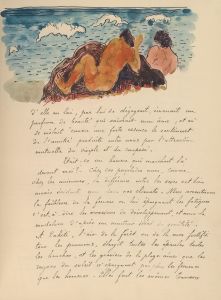 d'elle en lui, par lui se dégageait, émanait un
parfum de beauté qui enivrait mon âme, et où
se mêlait comme une forte essence le sentiment
de l'amitié produite entre nous par l'attraction
mutuelle du simple et du composé.
Était-ce un homme qui marchait là
devant moi? - Chez ces peuplades nues, comme
chez les animaux, la différence entre les sexes est bien
moins évidente que dans nos climats. Nous accentuons
la faiblesse de la femme en lui épargnant les fatigues
c'est-à-dire les occasions de développement, et nous la
modelons d'après un menteur idéal de gracilité.
À Tahiti, l'air de la forêt ou de la mer fortifie
tous les poumons, élargit toutes les épaules, toutes
les hanches, et les graviers de la plage ainsi que les
rayons du soleil n'épargnent pas plus les femmes
que les hommes. Elles font les mêmes travaux